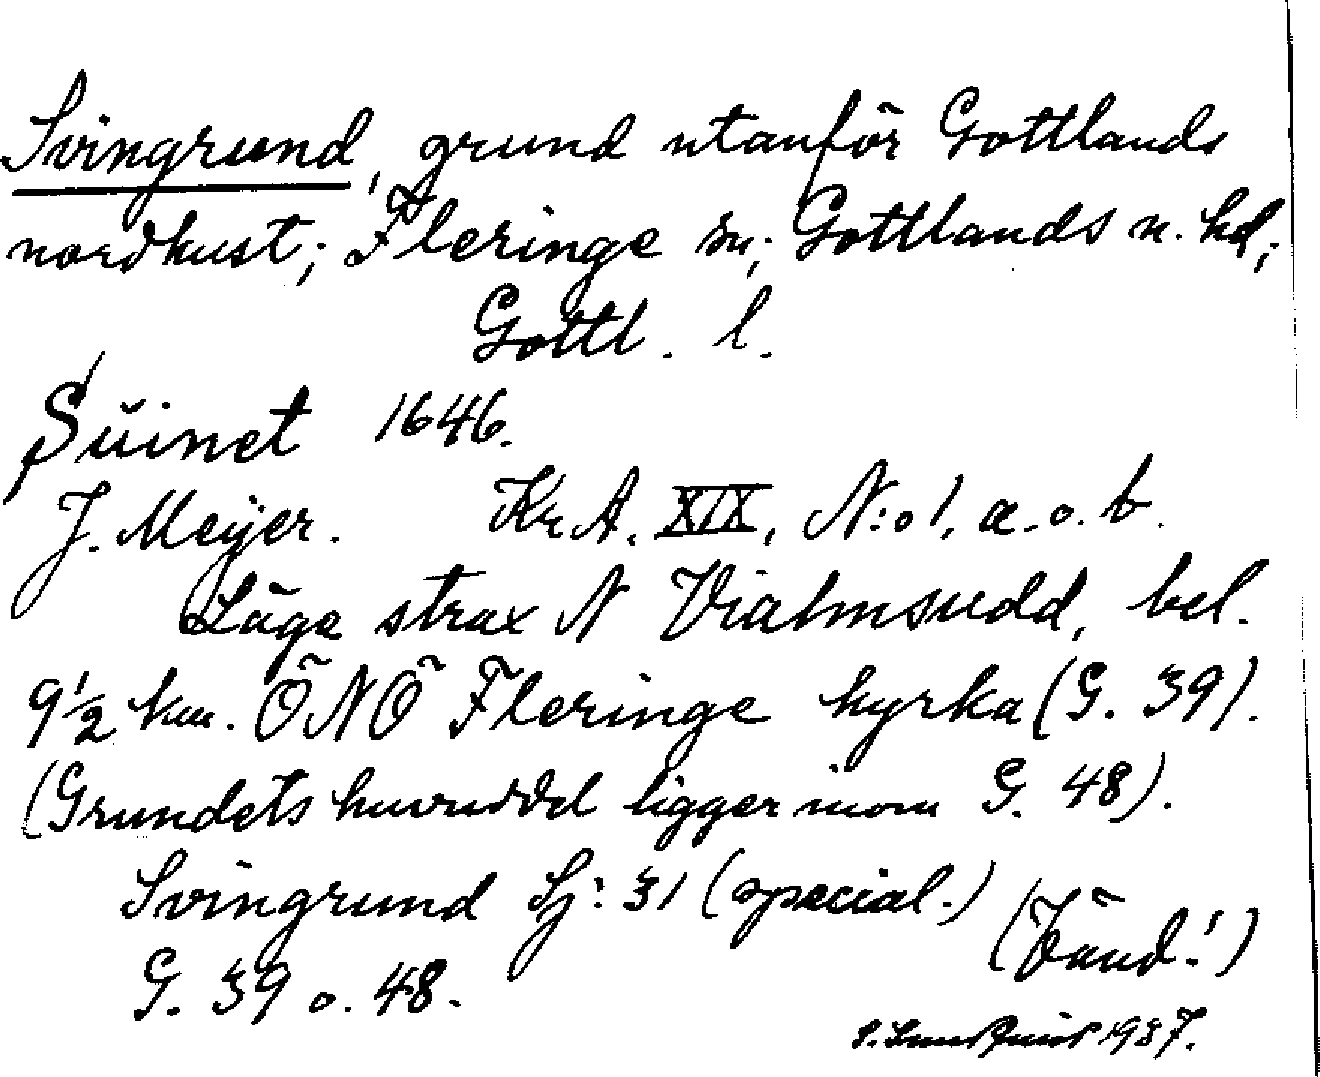 Svingrund, grund utanför Gottlands
nordkust; Fleringe sn; Gottlands n. hd;
Gottl. l.
Sŭinet 1646.
J. Meÿer. Kr A. XIX, N:o 1. a. o. b.
Läge strax N Vialmsudd, bel.
9½ km. ÖNÖ Fleringe kyrka (G. 39).
(Grundets huvuddel ligger inom G. 48).
Svingrund Sj: 31 (special.)
(Vänd!)
G. 39 o. 48.
1937.